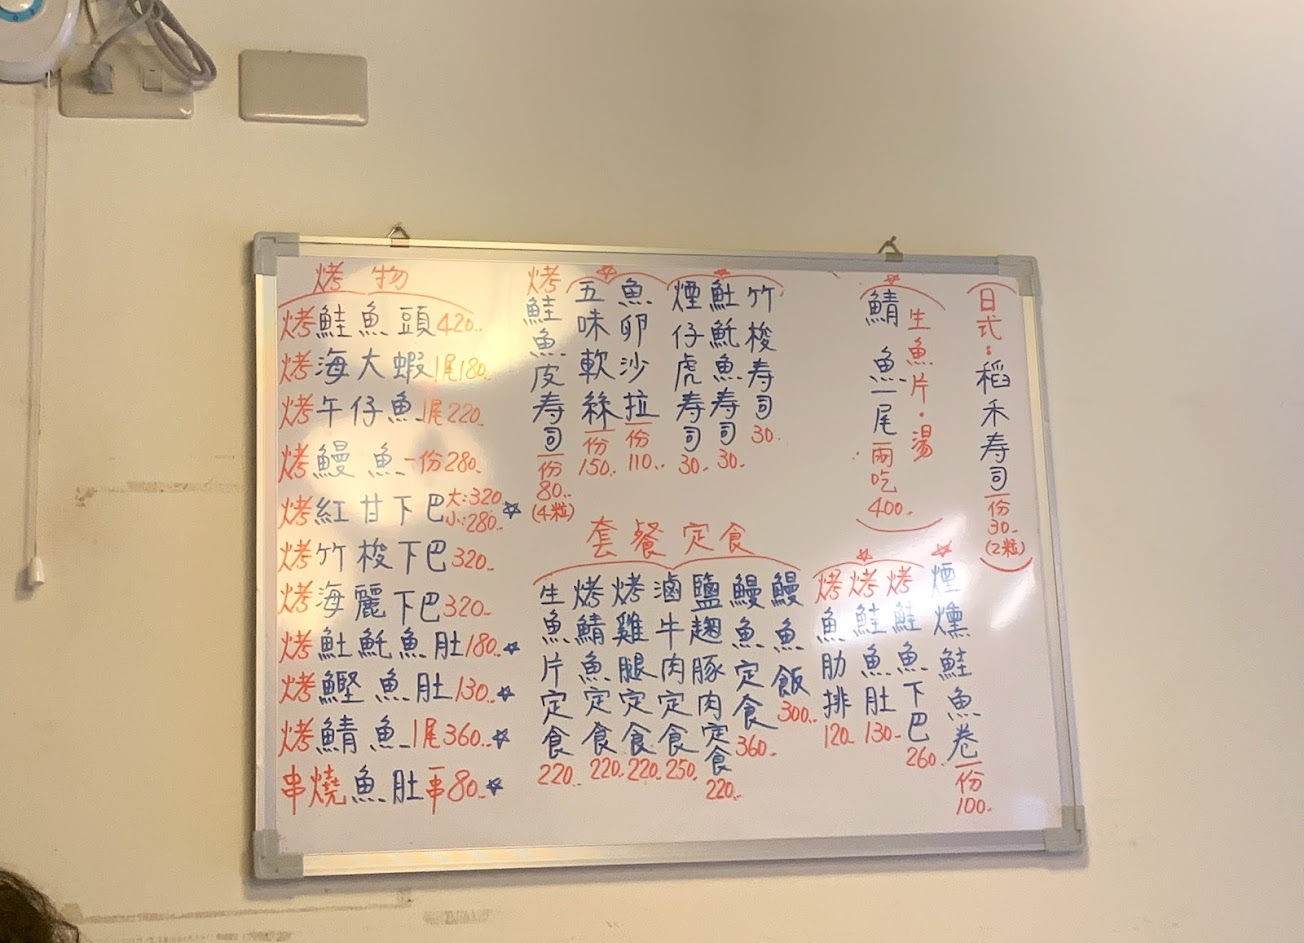 烤物
烤鮭魚頭420.
烤海大蝦1尾180.
烤午仔魚1尾220.
烤鰻魚一份280.
烤紅甘下巴大:320. 小:280.
烤竹梭下巴320.
烤海麗下巴320.
烤魠魠魚肚180.
烤鰹魚肚130.
烤鯖魚1尾360.
串燒魚肚一串80.
烤鮭魚皮寿司一份80.(4粒)
五味軟絲一份150.
魚卵沙拉一份110.
煙仔虎寿司30.
魠魠魚寿司30.
竹梭寿司30.
鯖魚一尾兩吃400.
生魚片.湯
日式:稻禾寿司一份30.(2粒)
套餐定食
生魚片定食220.
烤鯖魚定食220.
烤雞腿定食220.
滷牛肉定食250.
鹽麴豚肉定食220.
鰻魚定食360.
鰻魚飯300.
烤魚肋排120.
烤鮭魚肚130.
烤鮭魚下巴260.
煙燻鮭魚卷一份100.